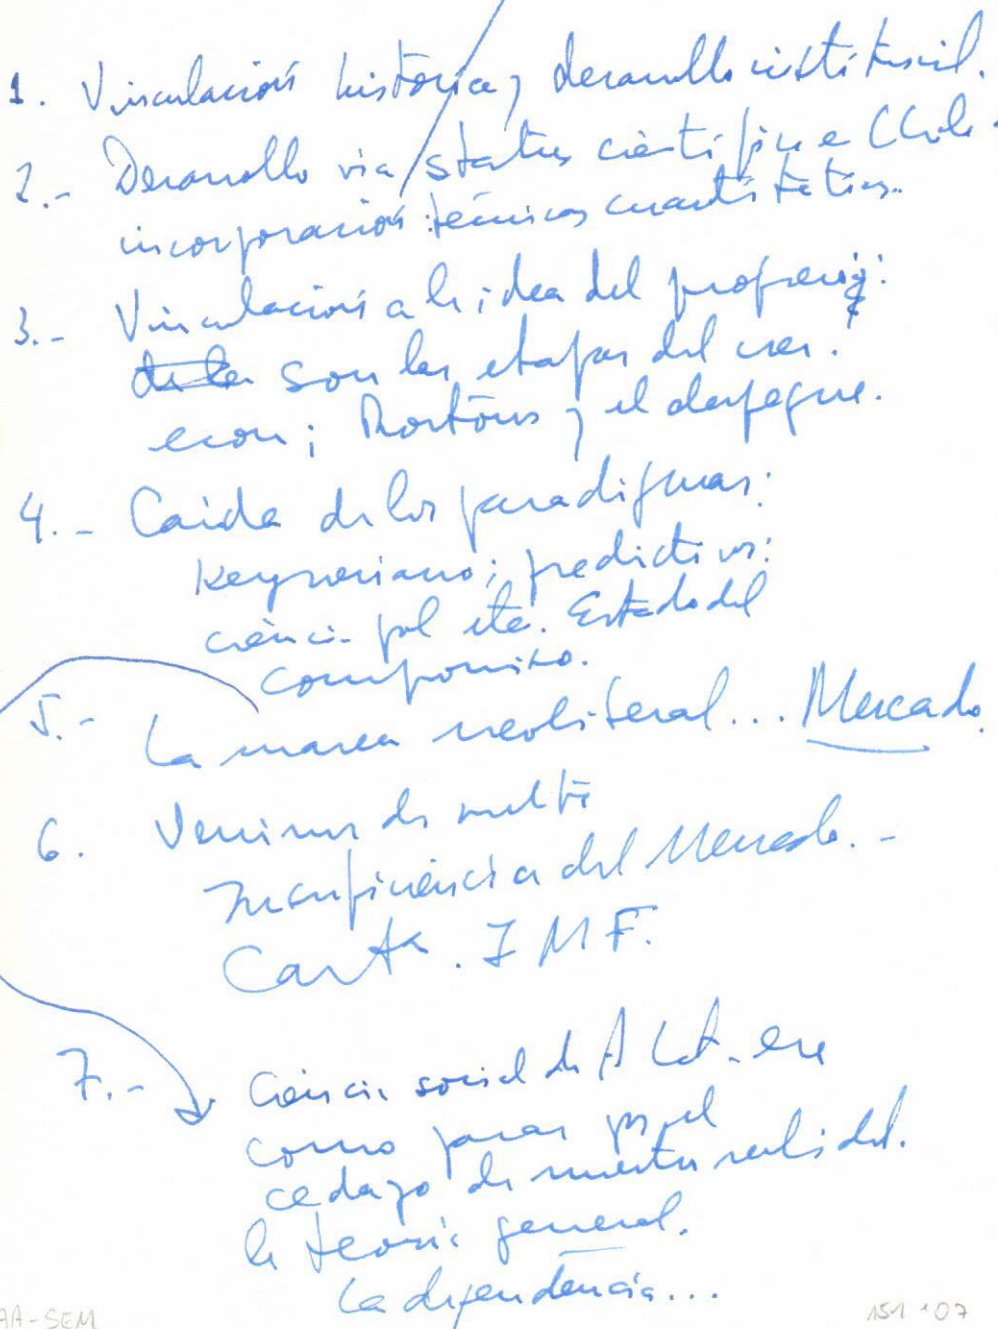 1. Vinculación histórica y desarrollo institucional.
2.- Desarrollo via status científico e
incorporación técnicas cuantitativas.
3.- Vinculación a la idea del progreso:
son las etapas del crec.
econ; y el despegue.
4.- Caída de los paradigmas:
keynesiano; predictivos:
cienci- pol etc. Estado del
compromiso.
5.- La marea neoliberal... Mercado.
6. Venimos de vuelta
Insuficiencia del Mercado.-
Carta. I M F.
7.- Ciencia social de A Lat. era
como pasar por el
cedazo de nuestra realidad.
la teoría general.
La dependencia...
AA-SEM
151-07